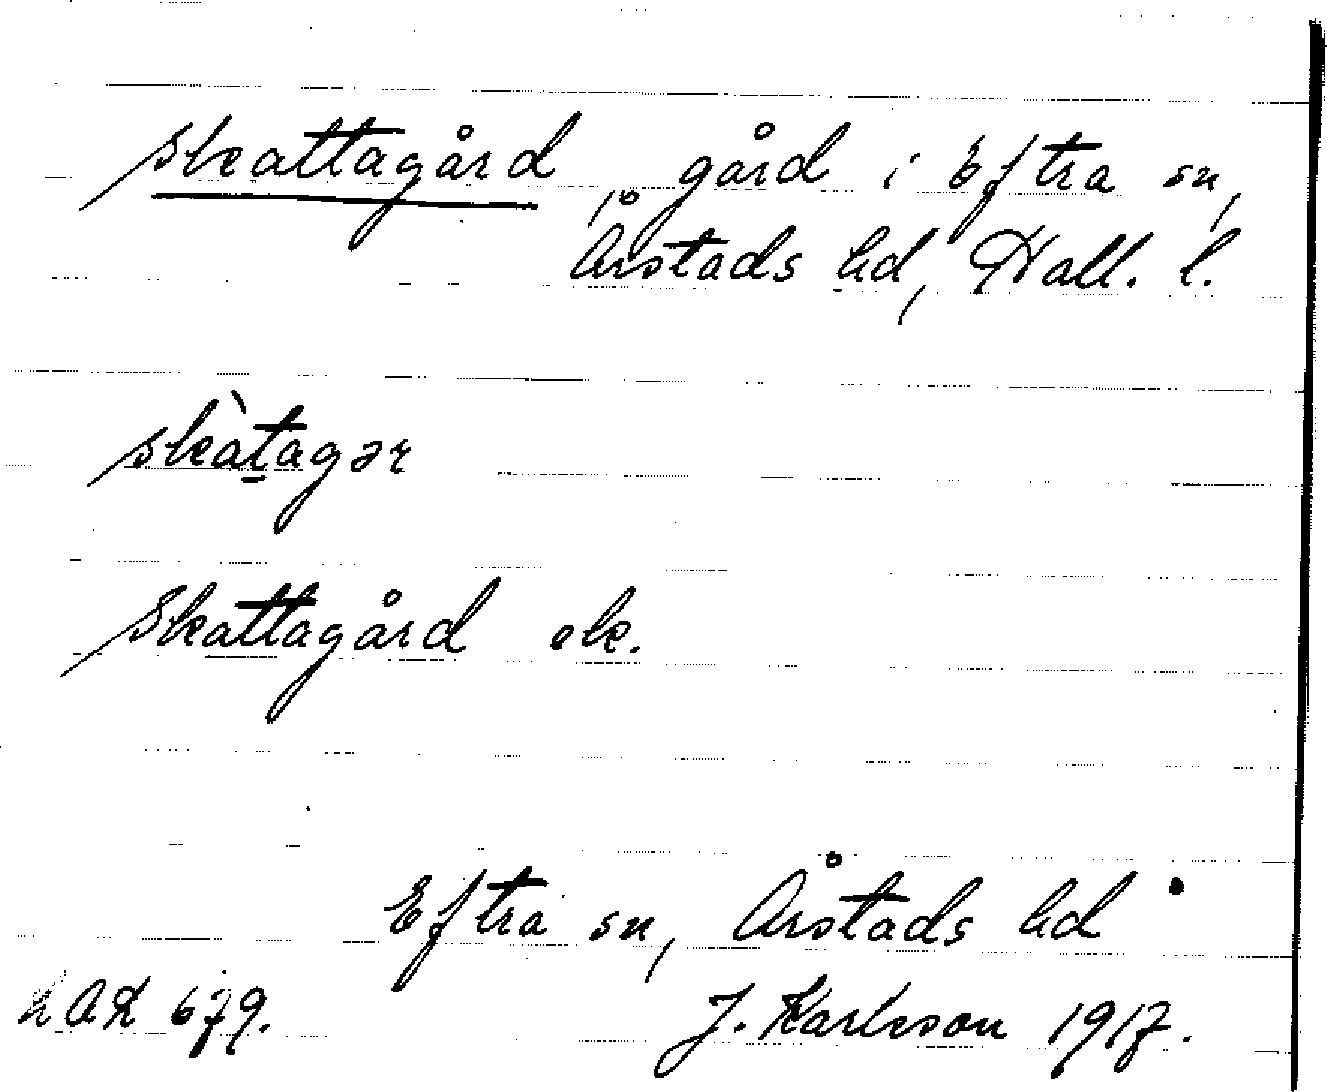 Skattagård, gård i Eftra sn,
Årstads hd, Hall. l.
skàt̲agər
Skattagård ek.
Eftra sn, Årstads hd
LAL 679. J. Karlsson 1917.